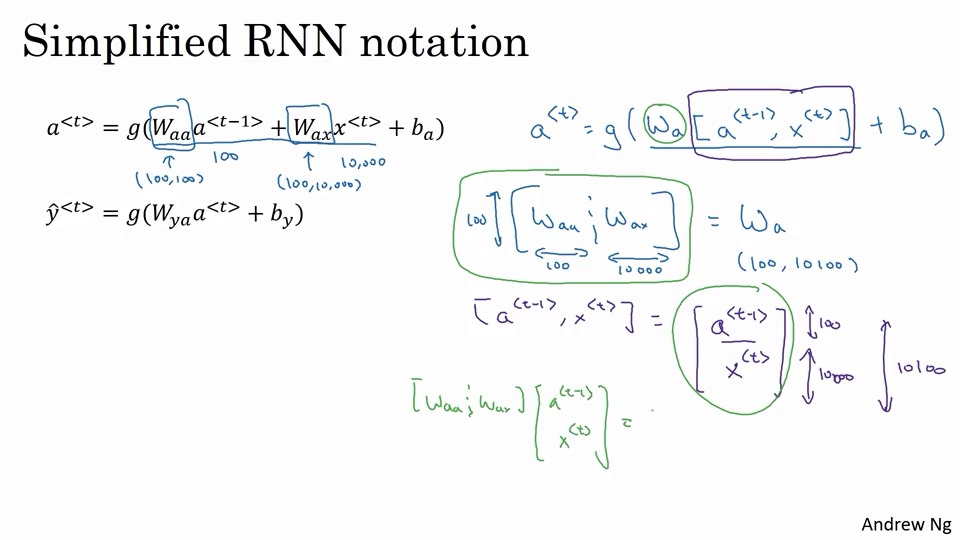 Simplified RNN notation
a^{<t>} = g(W_{aa}a^{<t−1>} + W_{ax}x^{<t>} + b_a)
100 10,000
(100,100) (100,10,000)
ŷ^{<t>} = g(W_{ya}a^{<t>} + b_y)
a^{<t>} = g(W_a [a^{<t-1>}, x^{<t>}] + b_a)
100 [W_{aa} ¦ W_{ax}] = W_a
100 10000 (100, 10100)
[a^{<t-1>}, x^{<t>}] = [a^{<t-1>} 100
x^{<t>}] 10000 10100
[W_{aa} ¦ W_{ax}] [a^{<t-1>}
x^{<t>}] =
Andrew Ng